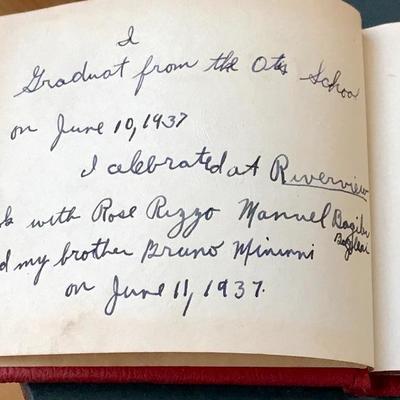 I
Graduat from the Otis School
on June 10, 1937
I celebrated at Riverview
with Rose Rizzo Manuel
my brother Bruno Mininni
on June 11, 1937.